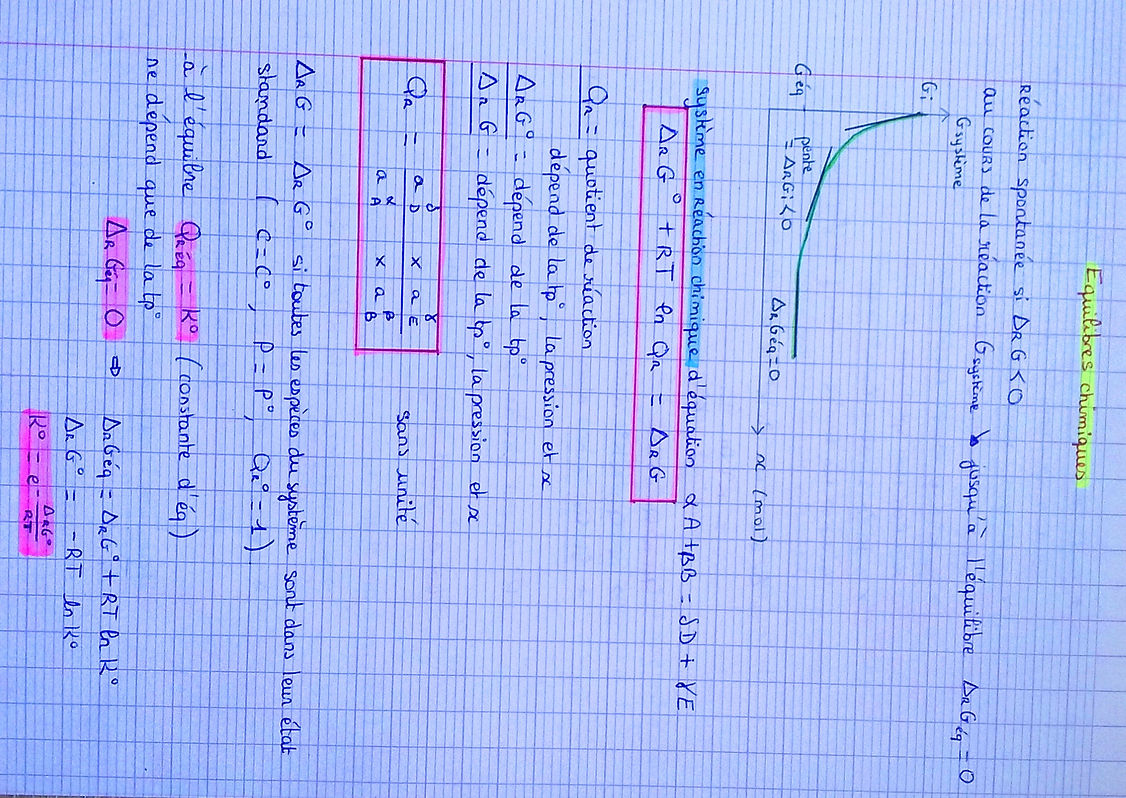 Equilibres chimiques
Réaction spontanée si ΔrG < 0
au cours de la réaction Gsystème ↘ jusqu'à l'équilibre ΔrGéq = 0
Gsystème
Gi
pente
= ΔrGi<0
Géq
ΔrGéq=0
x (mol)
système en réaction chimique d'équation αA+βB = δD + γE
ΔrG° + RT ln Qr = ΔrG
Qr = quotient de réaction
dépend de la tp°, la pression et x
ΔrG° = dépend de la tp°
ΔrG = dépend de la tp°, la pression et x
Qr = (a_D^δ × a_E^γ) / (a_A^α × a_B^β) sans unité
ΔrG = ΔrG° si toutes les espèces du système sont dans leur état
standard ( C=C°, P=P°, Qr°=1)
-à l'équilibre Qréq = K° (constante d'éq)
ne dépend que de la tp°
ΔrGéq=0 ⇒ ΔrGéq = ΔrG° + RT ln K°
ΔrG° = -RT ln K°
K° = e^-ΔrG°/RT